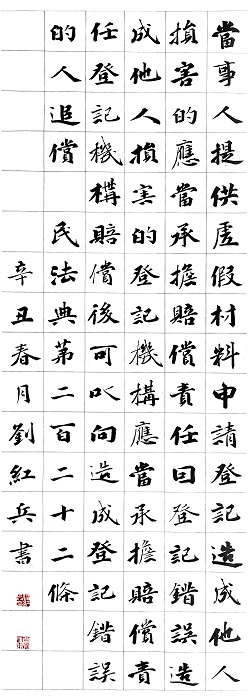 當事人提供虛假材料申請登記造成他人
損害的應當承擔賠償責任囙登記錯誤造
成他人損害的登記機構應當承擔賠償責
任登記機構賠償後可以向造成登記錯誤
的人追償 民法典第二百二十二條
辛丑春月劉紅兵書